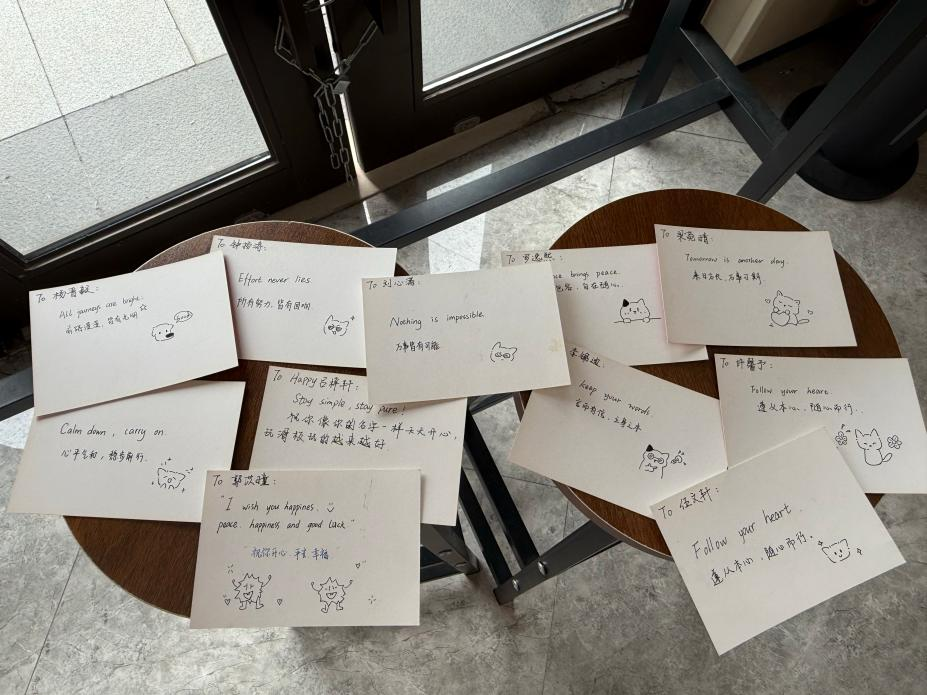 To 钟梓涛:
Effort never lies.
所有努力,皆有回响.
To 杨晋毅:
All journeys are bright.
前路漫漫,皆有光明☆
Good
To 刘心满:
Nothing is impossible.
万事皆有可能
Calm down, carry on.
心平气和,稳步前行.
To Happy吕梓轩:
Stay simple, stay pure!
祝你像你的名字一样天天开心,
玩滑板玩的越来越好
To 郭汶瞳:
"I wish you happiness.
peace. happiness and good luck."
"祝你开心 平安 幸福"
To
brings peace.
自在随心.
To 梁苑晴:
Tomorrow is another day.
来日方长,万事可期.
keep your words.
言而有信,立身之本
To 许馨予:
Follow your heart.
遵从本心,随心而行.
To 伍文轩:
Follow your heart.
遵从本心,随心而行.